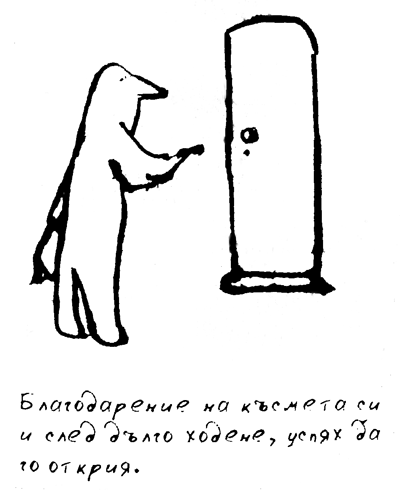 Благодарение на късмета си
и след дълго ходене, успях да
го открия.